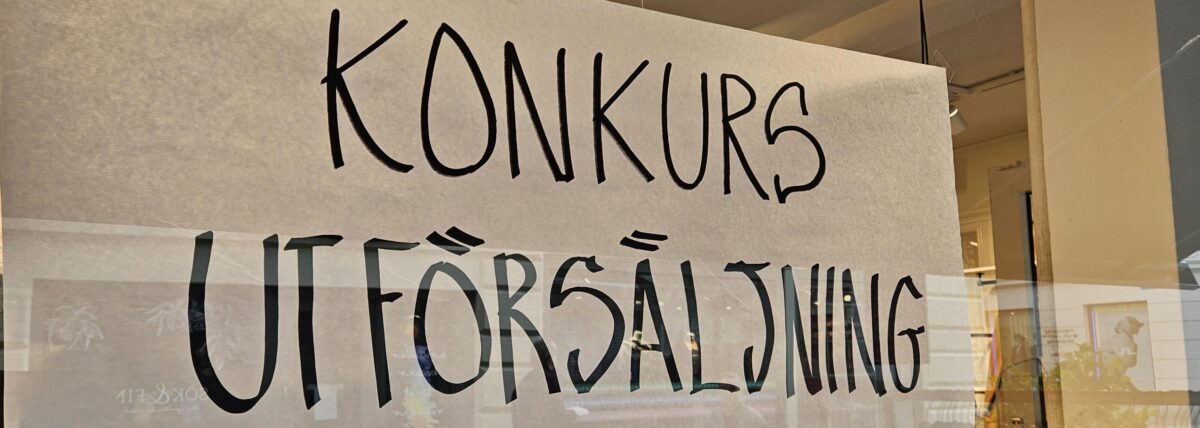 KONKURS
UTFÖRSÄLJNING